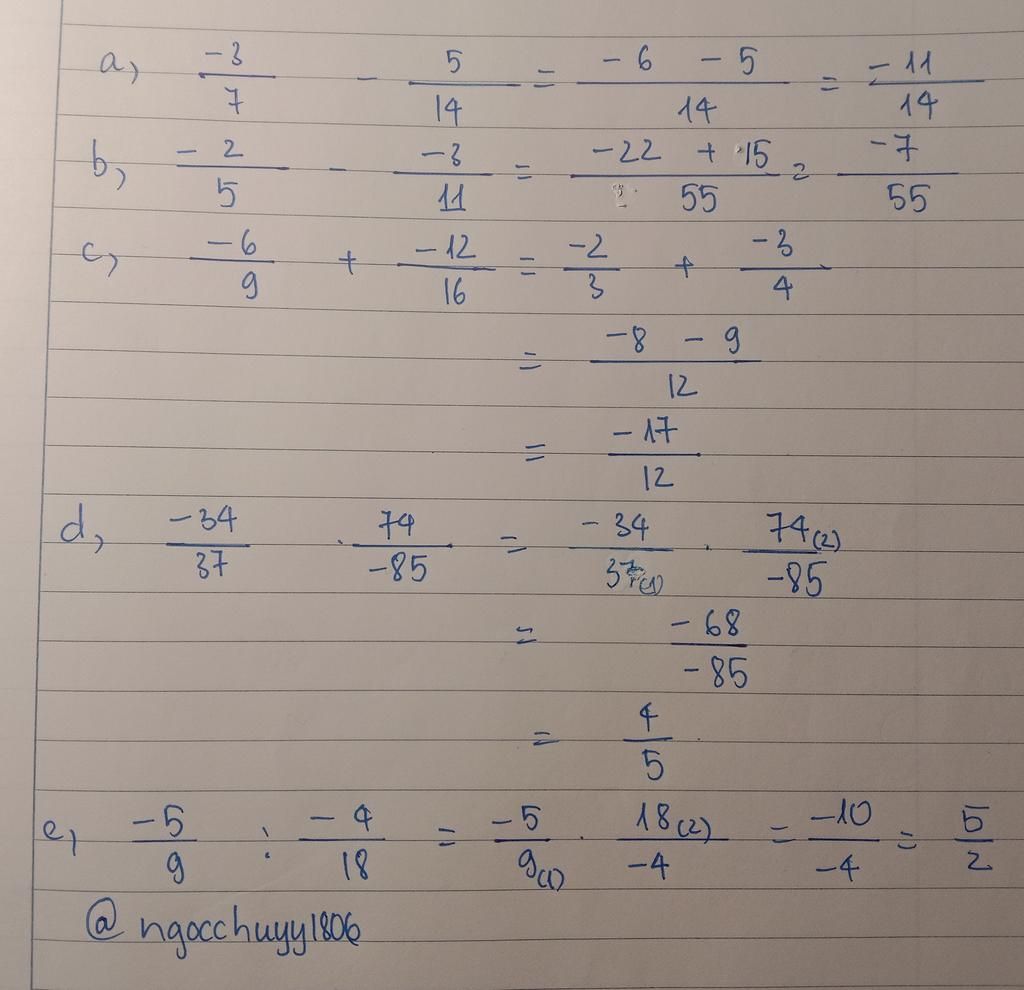 a, -3/7 - 5/14 = (-6 - 5)/14 = -11/14
b, -2/5 - -3/11 = (-22 + 15)/55 = -7/55
c, -6/9 + -12/16 = -2/3 + -3/4
= (-8 - 9)/12
= -17/12
d, -34/37 . 74/-85 = -34/37(1) . 74(2)/-85
= -68/-85
= 4/5
e, -5/9 : -4/18 = -5/9(1) . 18(2)/-4 = -10/-4 = 5/2
@ngocchuyy1806